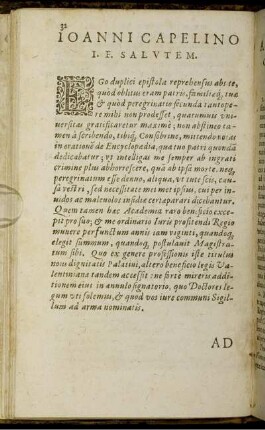 32
IOANNI CAPELINO
I. F. SALVTEM.
EGo duplici epistola reprehensus abs te,
quòd oblitus eram patriæ, familiæq; tuæ
& quòd peregrinatio secunda tantope-
re mihi non prodesset, quatumuis vni-
uersitas gratificaretur maximè; non abstineo ta-
men à scribendo, tibiq; Consobrine, mittendo nostrā
in orationē de Encyclopedia, quæ tuo patri quondā
dedicabatur; vt intelligas me semper ab ingrati
crimine plus abhorrescere, quā ab ipsa morte. neq;
peregrinatum esse denuo, aliqua, vt tute scis, cau-
sa vestri, sed necessitate met met ipsius, cui per in-
uidos ac maleuolos insidiæ certa parari dicebantur.
Quem tamen hæc Academia raro beneficio exce-
pit prosuo; & me ordinario Iuris profitendi Regio
munere perfunctum annis iam viginti, quandoq;
elegit summum, quandoq; postulauit Magistra-
tum sibi. Quo ex genere professionis iste titulus
noui dignitatis Palatini, altero beneficio legis Va-
lentiniana tandem accessit: ne fortè mireris additio-
nem eius in annulo signatorio, quo Doctores le-
gum vti solemus, & quod vos iure communi Sigil-
lum ad arma nominatis.
AD